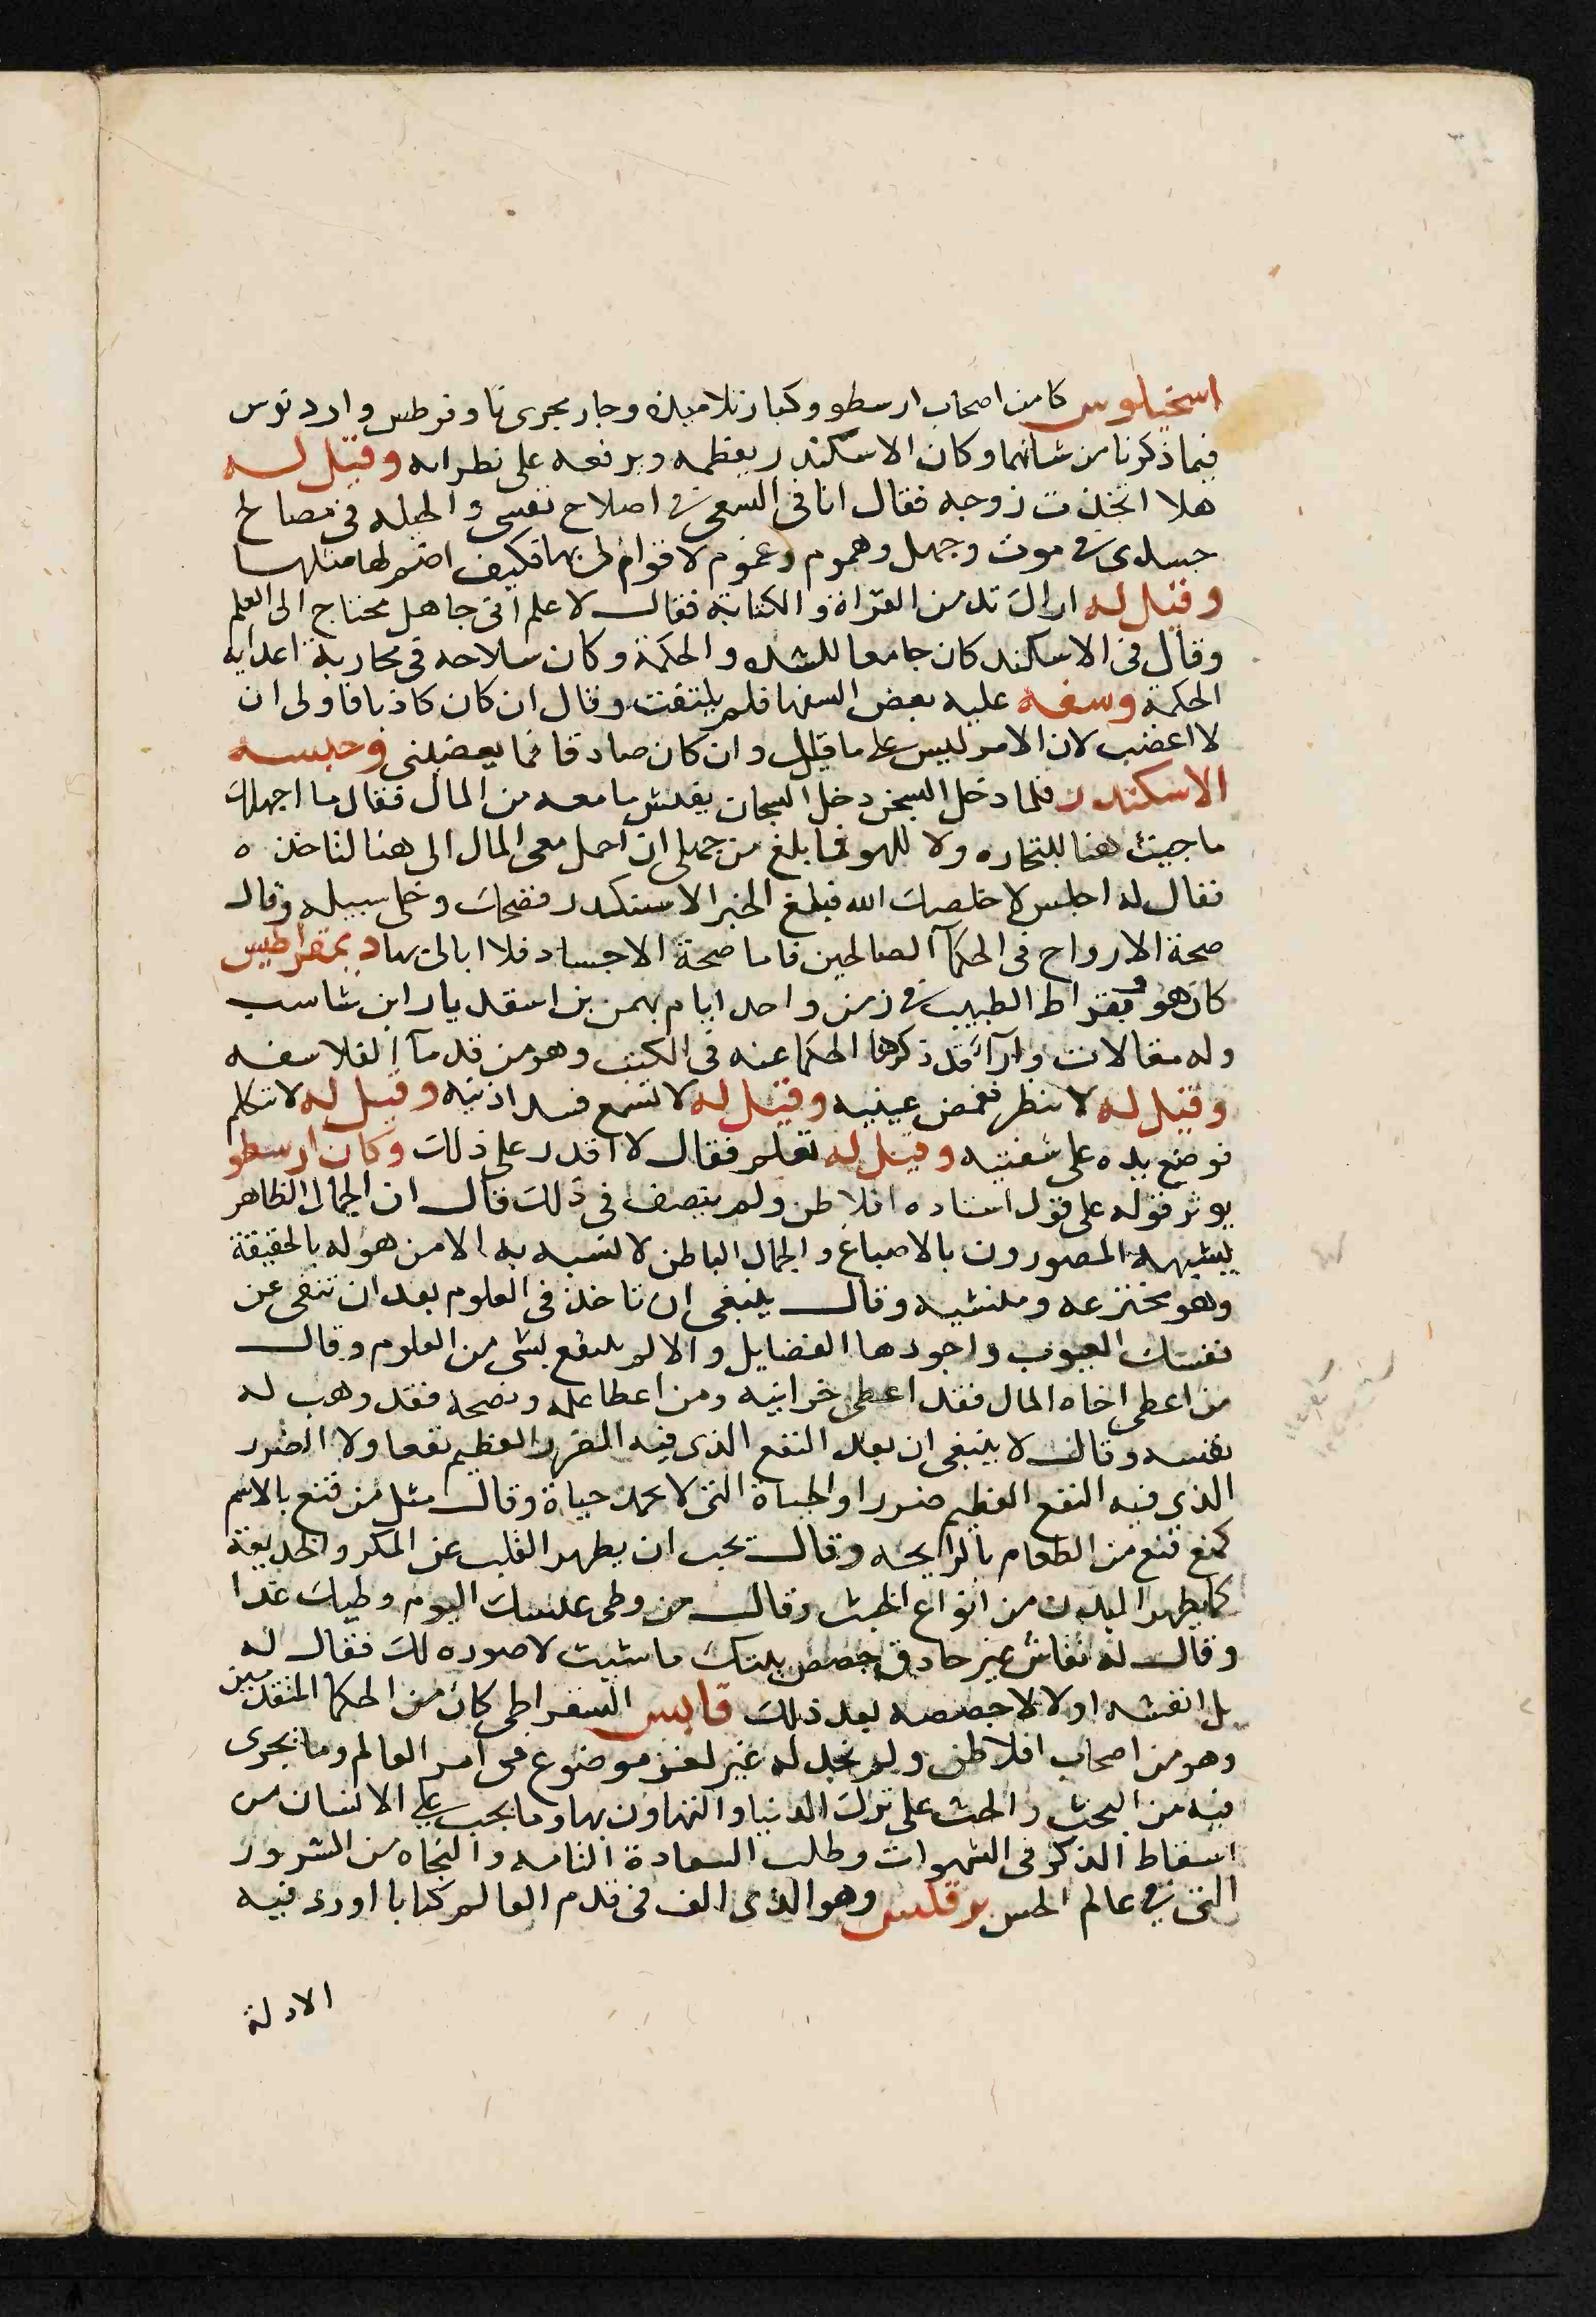 اسخيلوس كان من اصحاب ارسطو وكبار تلاميذه وجار مجرى ثاوفرطس واردنوس
فيما ذكرنا من شانهما وكان الاسكندر يعظمه ويرفعه على نظرائه وقيل له
هلا اتخذت زوجه فقال انا في السعى في اصلاح نفسي والحيله في مصالح
جسدى في موت وجهل وهموم وغموم لا قوام لى بها فكيف اضم لها مثلها
وقيل له اراك تدمن القراة والكتابة فقال لاعلم انى جاهل محتاج الى العلم
وقال في الاسكند كان جامعا للشده والحكمة وكان سلاحه في محاربة اعدايه
الحكمة وسفه عليه بعض السفها فلم يلتفت وقال ان كان كاذبا فاولى ان
لا اغضب لان الامر ليس على ما قيل وان كان صادقا فما يغضبنى وحبسه
الاسكندر فلما دخل السجن دخل السجان يفتش ما معه من المال فقال ما اجهلك
ما جيت هنا للتجاره ولا للهو فما بلغ من جهلى ان احمل معى المال الى هنا لتاخذه
فقال له اجلس لا خلصك الله فبلغ الخبر الاسكندر فضحك وخلى سبيله وقال
صحة الارواح في الحكمآ الصالحين فاما صحة الاجساد فلا ابالى بها ديمقراطيس
كان هو وبقراط الطبيب في زمن واحد ايام بهمن بن اسفنديار ابن شاسب
وله مقالات وارآ قد ذكرها الحكما عنه في الكتب وهو من قدمآ الفلاسفه
وقيل له لا تنظر فغمض عينيه وقيل له لا تسمع فسد اذنيه وقيل له لا تتكلم
فوضع يده على شفتيه وقيل له تعلم فقال لا اقدر على ذلك وكان ارسطو
يوثر قوله على قول استاده افلاطن ولم ينصف في ذلك قال ان الجمال الظاهر
يشبهه المصورون بالاصباغ والجمال الباطن لا يشبه به الا من هو له بالحقيقة
وهو مخترعه ومنشيه وقال ينبغى ان تاخذ في العلوم بعد ان تنقى عن
نفسك العيوب واجودها الفضايل والا لم ينتفع بشى من العلوم وقال
من اعطى اخاه المال فقد اعطى خزانيه ومن اعطا علمه ونصحه فقد وهب له
نفسه وقال لا ينبغى ان يعد النفع الذى فيه الضرر العظيم نفعا ولا الضرر
الذى فيه النفع العظيم ضررا والحياة التى لا تحمد حياة وقال مثل من قنع بالاسم
كمن قنع من الطعام بالرايحه وقال يجب ان يطهر القلب عن المكر والخديعة
كما يطهر البدن من انواع الخبث وقال من وطى عليك اليوم وطيك غدا
وقال له نقاش غير حادق جصص بيتك ما شيت لاصوره لك فقال له
بل انقشه اولا لاجصصه بعد ذلك قابس السقراطى كان من الحكما المتقدمين
وهو من اصحاب افلاطن ولم نجد له غير لغز موضوع فى امر العالم وما يجرى
فيه من البحث والحث على ترك الدنيا والتهاون بها وما يجب على الانسان من
اسقاط الذكر في الشهوات وطلب السعادة التامه والنجاه من الشرور
التى فى عالم الحس برقلس وهو الذى الف في قدم العالم كتابا اورد فيه
الادلة